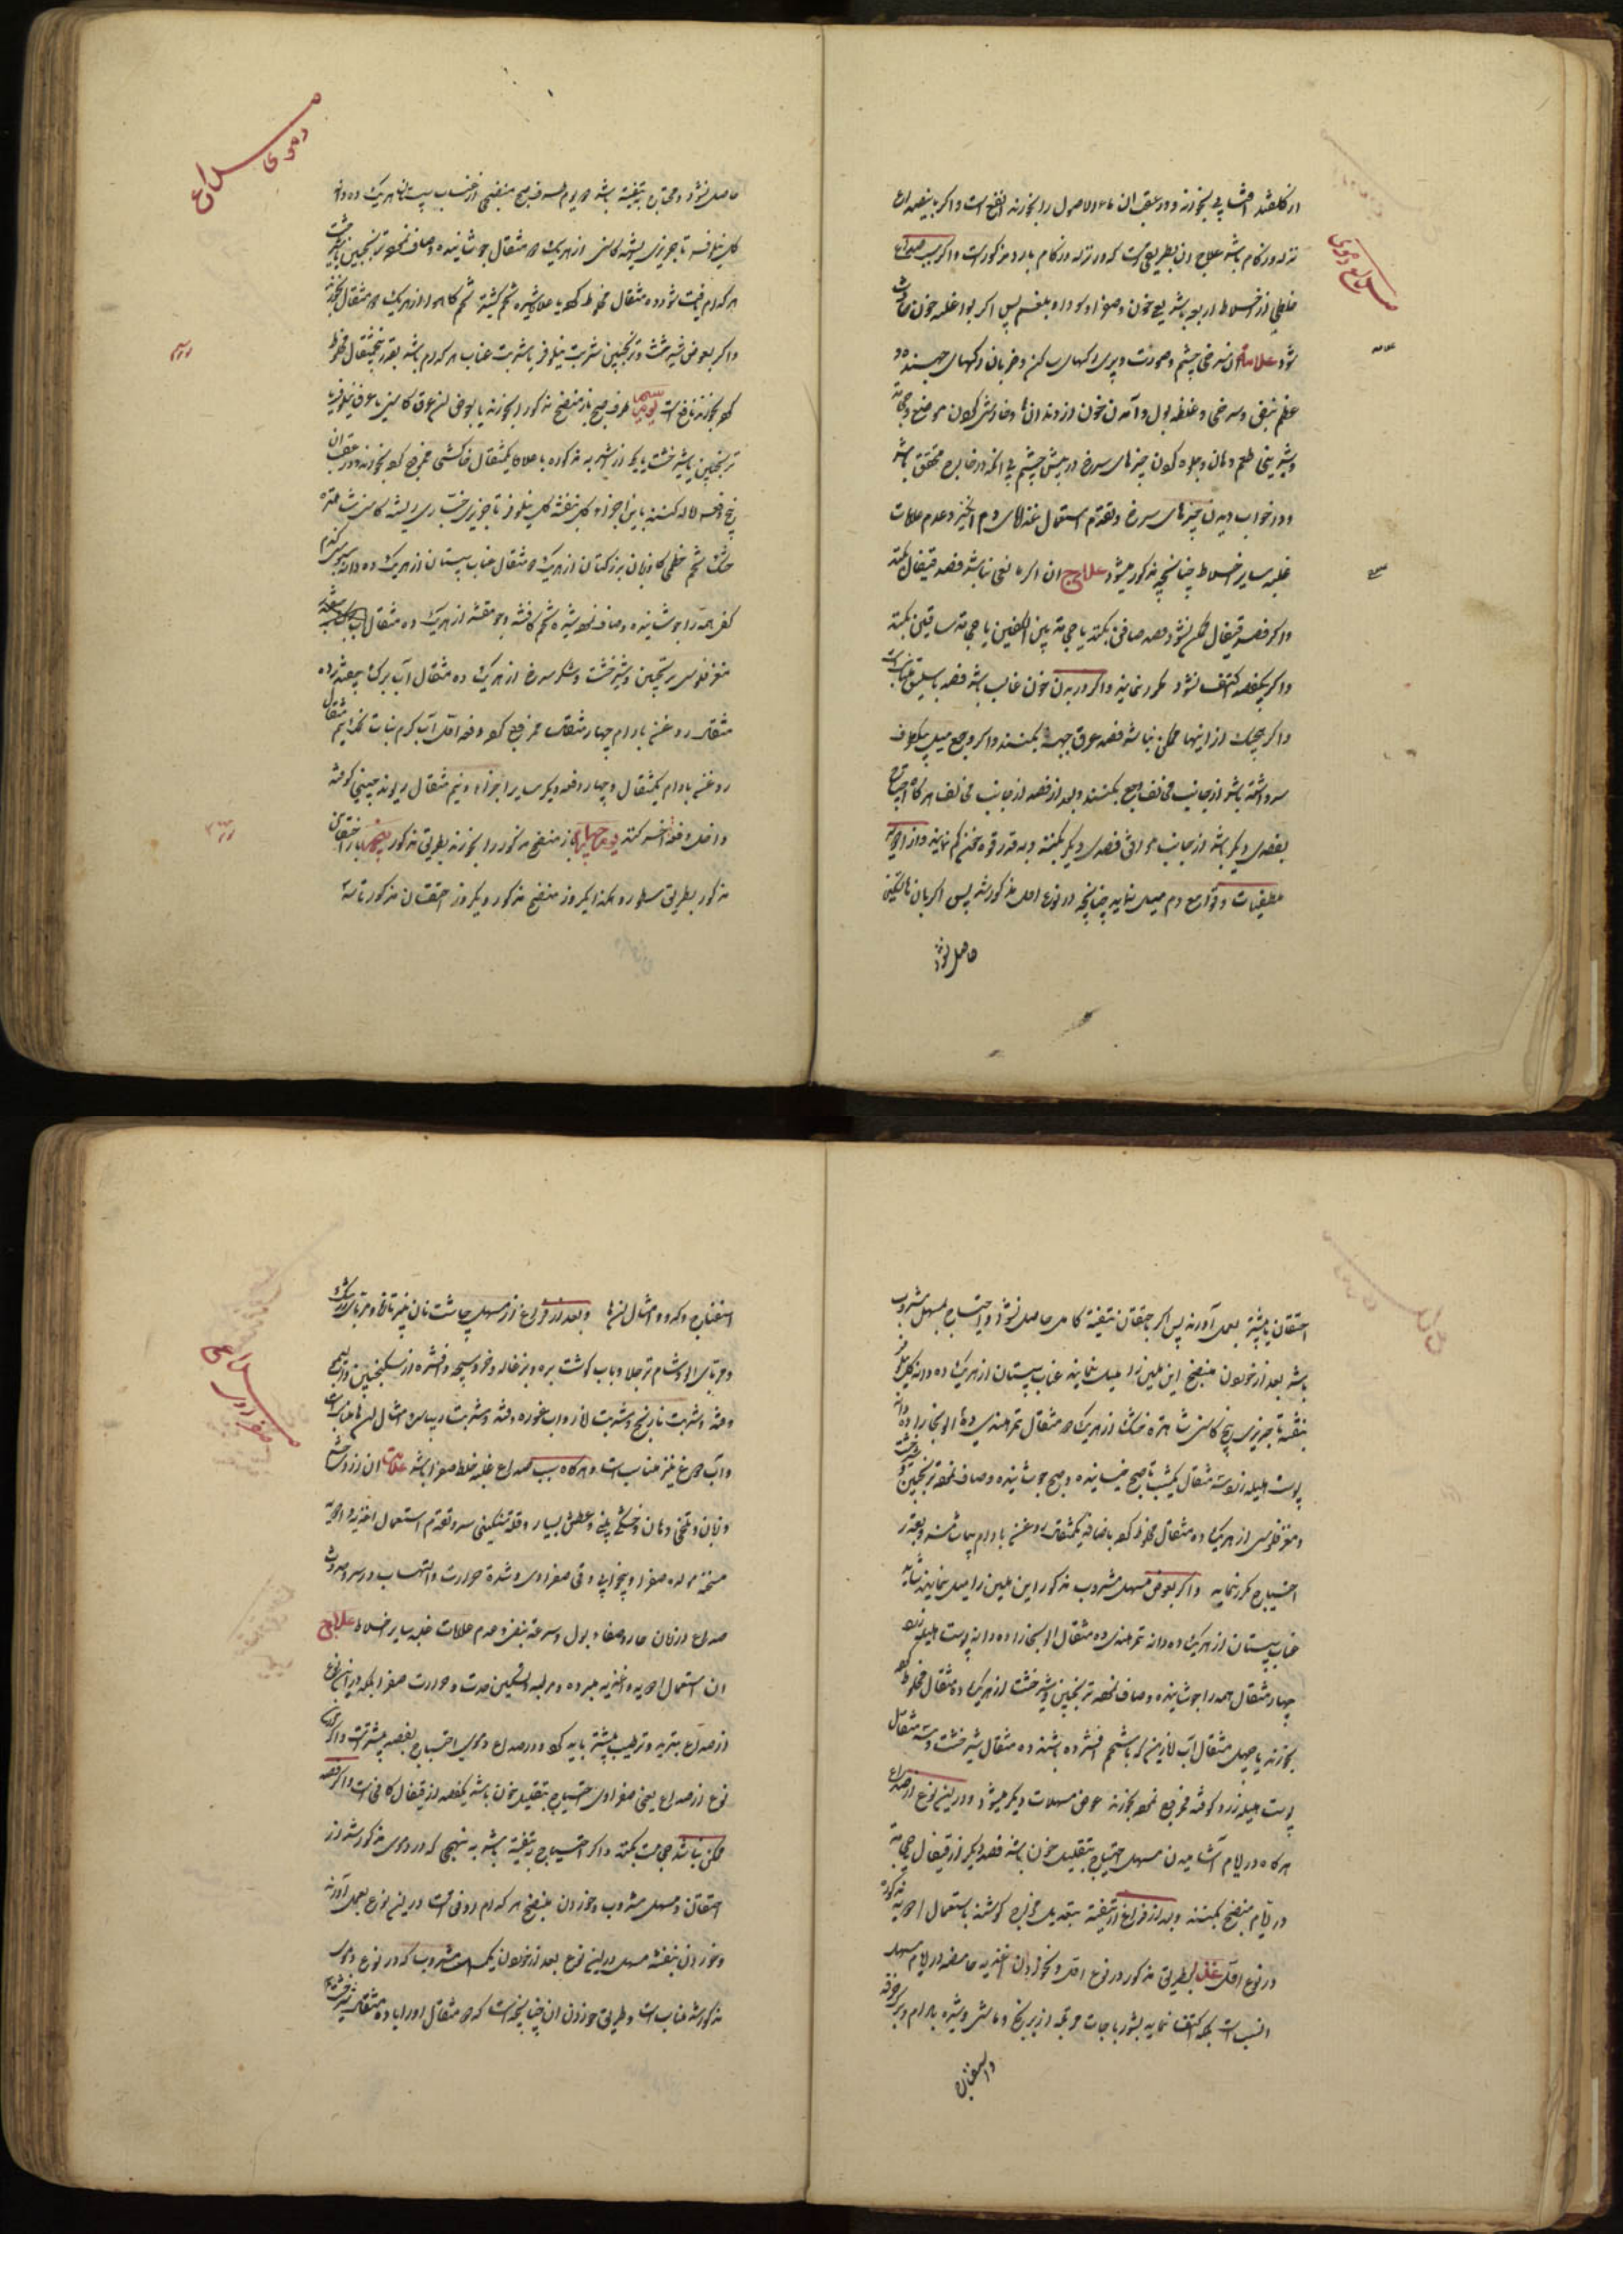 صداع دموی
از گلقند افشا پی بخورند و در عقب آن ماءالاصول را بخورند انفع است و اگر با بیضه
نزله و زکام باشد علاج آن بطریقی است که در نزله و زکام بارد مذکور است و اگر سبب صداع
خلطی از اخلاط اربعه باشد یعنی خون و صفرا و سودا و بلغم پس اگر بود غلبه خون حادث
شود علامة آن سرخی چشم و صورت و پری رگهای ساکن و ضربان رگهای جهنده و
عظم نبض و سرخی و غلظة بول و آمدن خون از دندانها و خارش کردن موضع حجامة
و شیرینی طعم دهان و جلوه کردن چیزهای سرخ در پیش چشم بی آنکه در خارج محقق باشد
و در خواب دیدن چیزهای سرخ و تقدم استعمال غذاهای دم انگیز و عدم علامات
غلبه سایر اخلاط چنانچه مذکور میشود علاج آن اگر مانعی نباشد فصد قیفال بکنند
و اگر فصد قیفال ممکن نشود فصد صافن بکنند یا حجامة بین الکتفین یا حجامة ساقین بکنند
و اگر بیکفصد اکتفا نشود مکرر نمایند و اگر در بدن خون غالب باشد فصد باسلیق مناسب است
و اگر هیچیک از اینها ممکن نباشد فصد عرق جبهه بکنند و اگر وجع میل بیکطرف
سر داشته باشد از جانب مخالف وجع بکنند و بعد از فصد از جانب مخالف هرگاه احتیاج
بفصدی دیگر باشد از جانب موافق فصدی دیگر بکنند و بقدر قوة خون کم نمایند و از ادویه
مطفیات و قوامع دم میل نماید چنانچه در نوع اول مذکور شد پس اگر بآن تا تسکینی
حاصل نشود
صداع دموی
حاصل نشود و محتاج به تنقیه باشد دو یوم طرف صبح منضجی از عناب سپستان از هر یک ده دانه
گل نیلوفر تاجریزی ریشه کاسنی از هر یک دو مثقال جوشانیده و صاف نموده ترنجبین یا شیرخشت
هر کدام یافت شود ده مثقال مخلوط کرده با علاوه شیره تخم کشنیز تخم کاهو از هر یک دو مثقال بخورند
و اگر بعوض شیرخشت و ترنجبین شربت نیلوفر یا شربت عناب هر کدام باشد بقدر پنجمثقال مخلوط
کرده بخورند نافع است یوم سیم طرف صبح باز منضج مذکور را بخورند یا بعوض آن عرق کاسنی با عرق نیلوفر با
ترنجبین یا شیرخشت یا یکی از اشربه مذکوره با علاوه یکمثقال خاکشی ممزوج کرده بخورند و در عقب آن
پنج دفعه اماله کنند باین اجزاء گل بنفشه گل نیلوفر تاجریزی خبازی ریشه کاسنی شاهتره
خشک تخم خطمی گاوزبان بزرکتان از هر یک دو مثقال عناب سپستان از هر یک ده دانه سبوس گندم
کفی همه را جوشانیده و صاف نموده شیره تخم کافشه و جو مقشر از هر یک ده مثقال
مغز فلوس ترنجبین و شیرخشت و شکر سرخ از هر یک ده مثقال آب برگ چغندر ده
مثقال روغن بادام چهار مثقال ممزوج کرده دفعه اول آب گرم نبات نمک نیم مثقال
روغن بادام یکمثقال و چهار دفعه دیگر سایر اجزاء و نیم مثقال ریوند چینی کوفته
داخل دفعه آخر کنند یوم چهارم باز منضج مذکور را بخورند بطریق مذکور پنجم باز احتقان
مذکور بطریق مسطور و هکذا یکروز منضج مذکور و یکروز احتقان مذکور تا سه
احتقان یا بیشتر بعمل آورند پس اگر باحتقان تنقیه کامل حاصل نشود و احتیاج بمسهل مشروب
باشد بعد از خوردن منضج این ملین را میل نمایند عناب سپستان از هر یک ده دانه گل نیلوفر
بنفشه تاجریزی بیخ کاسنی شاهتره خشک از هر یک دو مثقال تمر هندی ده آلو بخارا ده دانه
پوست هلیله زرد سه مثقال یکشب تا صبح خیسانیده و صبح جوشانیده و صاف نموده ترنجبین شیرخشت
و مغز فلوس از هر یک ده مثقال مخلوط کرده باضافه یکمثقال روغن بادام بیاشامند و بقدر
احتیاج مکرر نمایند و اگر بعوض مسهل مشروب مذکور این ملین را میل نمایند شاید
عناب سپستان از هر یک ده دانه تمر هندی ده مثقال آلو بخارا ده دانه پوست هلیله زرد
چهار مثقال همه را جوشانیده و صاف نموده ترنجبین و شیرخشت از هر یک ده مثقال مخلوط کرده
بخورند یا چهل مثقال آب انارین که با شحم افشرده باشند ده مثقال شیرخشت و سه مثقال
پوست هلیله زرد کوفته ممزوج نموده بخورند عوض مسهلات دیگر میشود و در این نوع از صداع
هرگاه در ایام آشامیدن مسهل احتیاج بتقلیل خون باشد فصد دیگر از قیفال یا حجامة
در ایام منضج بکنند و بعد از فراغ از تنقیه بتعدیل مزاج کوشند باستعمال ادویه مذکوره
در نوع اول غذا بطریق مذکور در نوع اول و نخوردن اغذیه حامضه در ایام مسهل
انسب است بلکه اکتفا نماید بشورباجات مرتبه از برنج و ماش و شیره بادام و برگ خرفه
و اسفناج
صداع صفراوی
اسفناج و کدو و امثال آنها و بعد از فراغ از مسهل چاشت نان پنیر تازه و مربای زرشک
و مربای آلو و شام ترچلاو و باب گوشت بره و بزغاله و خروسبچه و افشره از سکنجبین و آب لیمو
و قند و شربت نارنج و شربت انار و آب غوره و قند و شربت ریباس و امثال آنها مناسب است
و آب دوغ نیز مناسب است و هرگاه سبب صداع غلبه خلط صفرا باشد علامت آن زردی چشم
و زبان و تلخی دهان و خشکی بینی و عطش بسیار و قلة سنگینی سر و تقدم استعمال اغذیه و ادویه
مسخنه مولده صفرا و بیخوابی و قی صفراوی و شدة حرارت و التهاب در سر و حدوث
صداع در زمان حار و صفاء بول و سرعة نبض و عدم علامات غلبه سایر اخلاط علاج
آن استعمال ادویه و اغذیه مبرده و مرطبه و تسکین حدت و حرارت صفرا بلکه در این نوع
از صداع تبرید و ترطیب بیشتر باید کرد و در صداع دموی احتیاج بفصد بیشتر است و اگر در این
نوع از صداع یعنی صفراوی احتیاج بتقلیل خون باشد یکفصد از قیفال کافی است و اگر فصد
ممکن نباشد حجامت بکنند و اگر احتیاج به تنقیه باشد به نهجی که در دموی مذکور شد از
احتقان و مسهل مشروب و خوردن منضج هر کدام اوفق است در این نوع بعمل آورند
و خوردن بنفشه مسهل در این نوع بعد از خوردن یک مسهل مشروب که در نوع دموی
مذکور شد مناسب است و طریق خوردن آن چنانچه است که دو مثقال او را با ده مثقال شیرخشت